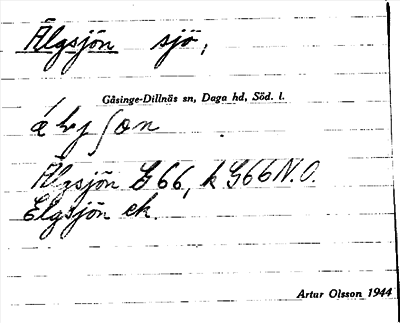 Älgsjön sjö,
Gåsinge-Dillnäs sn, Daga hd, Söd. l.
Älgsjön G 66, k G66N.O.
Elgsjön ek.
Artur Olsson 1944